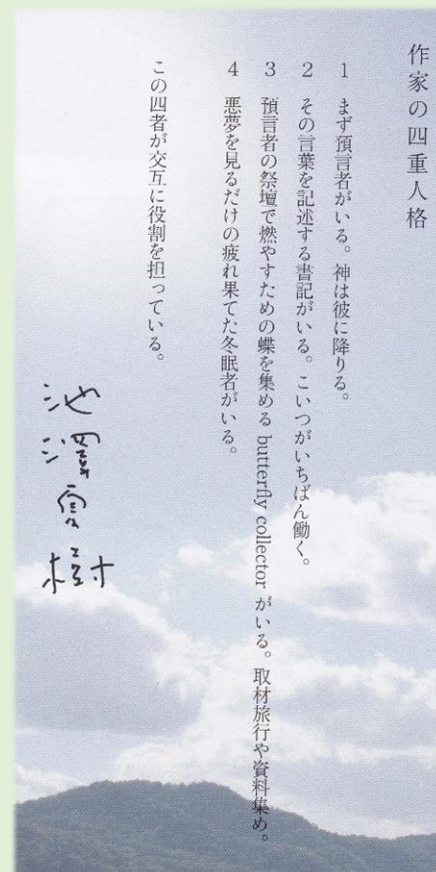 作家の四重人格
1 まず預言者がいる。神は彼に降りる。
2 その言葉を記述する書記がいる。こいつがいちばん働く。
3 預言者の祭壇で燃やすための蝶を集める butterfly collector がいる。取材旅行や資料集め。
4 悪夢を見るだけの疲れ果てた冬眠者がいる。
この四者が交互に役割を担っている。
池澤夏樹